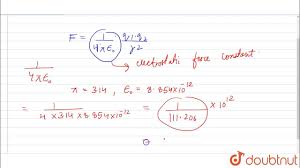 F = 1/4πε₀ q1·q2/r2
electrostatic force constant
1/4πε₀
π = 3.14 , ε₀ = 8.854×10⁻¹²
= 1/4×3.14×8.854×10⁻¹² = 1/111.206 × 10¹²
doubtnut